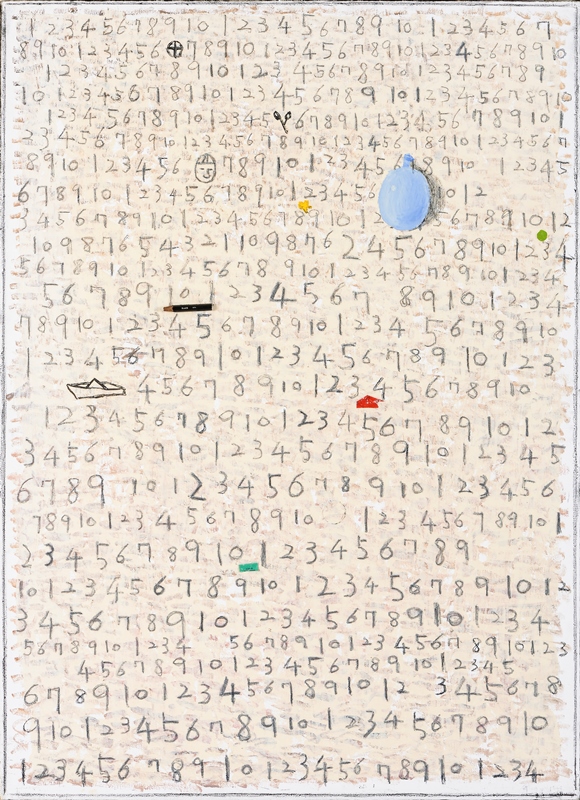 1 2 3 4 5 6 7 8 9 10 1 2 3 4 5 6 7 8 9 10 1 2 3 4 5 6 7
8 9 10 1 2 3 4 5 6 7 8 9 10 1 2 3 4 5 6 7 8 9 10 1 2 3 4 5 6 7 8 9 10
1 2 3 4 5 6 7 8 9 10 1 2 3 4 5 6 7 8 9 10 1 2 3 4 5 6 7 8 9
10 1 2 3 4 5 6 7 8 9 10 1 2 3 4 5 6 7 8 9 10 1 2 3 4 5 6 7 8 9 10
1 2 3 4 5 6 7 8 9 10 1 2 3 4 5 6 7 8 9 10 1 2 3 4 5 6 7 8 9 10
2 3 4 5 6 7 8 9 10 1 2 3 4 5 6 7 8 9 10 1 2 3 4 5 6 7 8 9 10 1 2 3 4 5 6 7
8 9 10 1 2 3 4 5 6 7 8 9 10 1 2 3 4 5 8 9 10 1 2 3 4 5
6 7 8 9 10 1 2 3 4 5 6 7 8 9 10 1 2 3 4 5 6 10 12
3 4 5 6 7 8 9 10 1 2 3 4 5 6 7 8 9 10 1 2 3 4 5 6 7 8 9 10 12
10 9 8 7 6 5 4 3 2 1 10 9 8 7 6 2 4 5 6 7 8 9 10 1 2 3 4
5 6 7 8 9 10 1 2 3 4 5 6 7 8 9 10 1 2 3 4 5 6 7 8 9 10 1 2 3 4
5 6 7 8 9 10 1 2 3 4 5 6 7 8 9 10 1 2 3 4
7 8 9 10 1 2 3 4 5 6 7 8 9 10 1 2 3 4 5 6 7 8 9 10
1 2 3 4 5 6 7 8 9 10 1 2 3 4 5 6 7 8 9 10 1 2 3
4 5 6 7 8 9 10 1 2 3 4 5 6 7 8 9 10
1 2 3 4 5 6 7 8 9 10 2 3 4 5 6 7 8 9 10 12
3 4 5 6 7 8 9 10 1 2 3 4 5 6 7 8 9 10 1 2 3 4 5
6 7 8 9 10 1 2 3 4 5 6 7 8 9 10 1 2 3 4 5 6
7 8 9 10 1 2 3 4 5 6 7 8 9 10 1 2 3 4 5 6 7 8 9 10 1
2 3 4 5 6 7 8 9 10 1 2 3 4 5 6 7 8 9
10 1 2 3 4 5 6 7 8 9 10 1 2 3 4 5 6 7 8 9 10 12
3 4 5 6 7 8 9 10 1 2 3 4 5 6 7 8 9 10 1 2 3 4
5 6 7 8 9 10 1 2 3 4 5 6 7 8 9 10 1 2 3 4 5 6 7 8 9 10 1 2 3
4 5 6 7 8 9 10 1 2 3 4 5 6 7 8 9 10 1 2 3 4 5
6 7 8 9 10 1 2 3 4 5 6 7 8 9 10 12 3 4 5 6 7 8
9 10 1 2 3 4 5 6 7 8 9 10 1 2 3 4 5 6 7 8 9 10
1 2 3 4 5 6 7 8 9 10 1 2 3 4 5 6 7 8 9 10 1 2 3 4